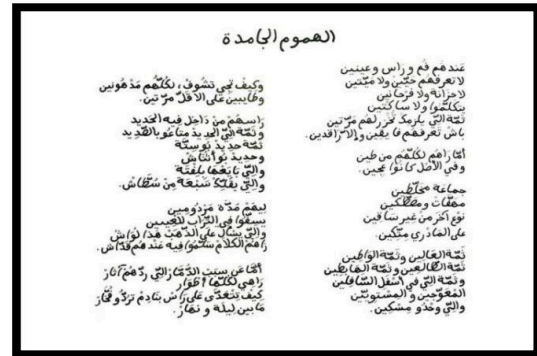 الهموم الجامدة
عندهم فم وراس وعينين
لا تعرفهم حيّين ولا ميّتين
لا حزانة ولا فرحانين
يتكلّموا ولا ساكتين
ثمّة الّي يلزمك تخزرلهم مرّتين
باش تعرفهم فايقين وإلا راقدين.
أمّا راهم لكلّهم من طين
وفي الأصل كانوا عجين.
جماعة مخلّطين
مهمّات ومصطكين
نوع آخر من غير ساقين
على المادري متّكين.
ثمّة العالين وثمّة الواطين
ثمّة الطّالعين وثمّة الهابطين
وثمّة الّي في أسفل السّافلين
المعوّجين والمستويّين
والّي وحدو مسكين.
وكيف تجي تشوف، لكلّهم مدهونين
وطايبين على الأقلّ مرّتين.
راسهم من داخل فيه الحديد
وثمّة الّي الحديد متاعو بالقديد
ثمّة حديد بوستّة
وحديد بو أثناش
والّي تابعها بلفتة
والّي يقلّك سبعة من سطّاش.
بيهم مدّة مردومين
يسقوا في التّراب للعينين
والّي يسأل على الذّهب هذا لواش
راهم الكلام سلّموا فيه عندهم قدّاش.
أمّا عن سبب الدّمار الّي ردّهم آثار
راهي لكلّها أطوار
كيف تتعدّى على راس بنادم تردّو فخّار
ما بين ليلة ونهار.